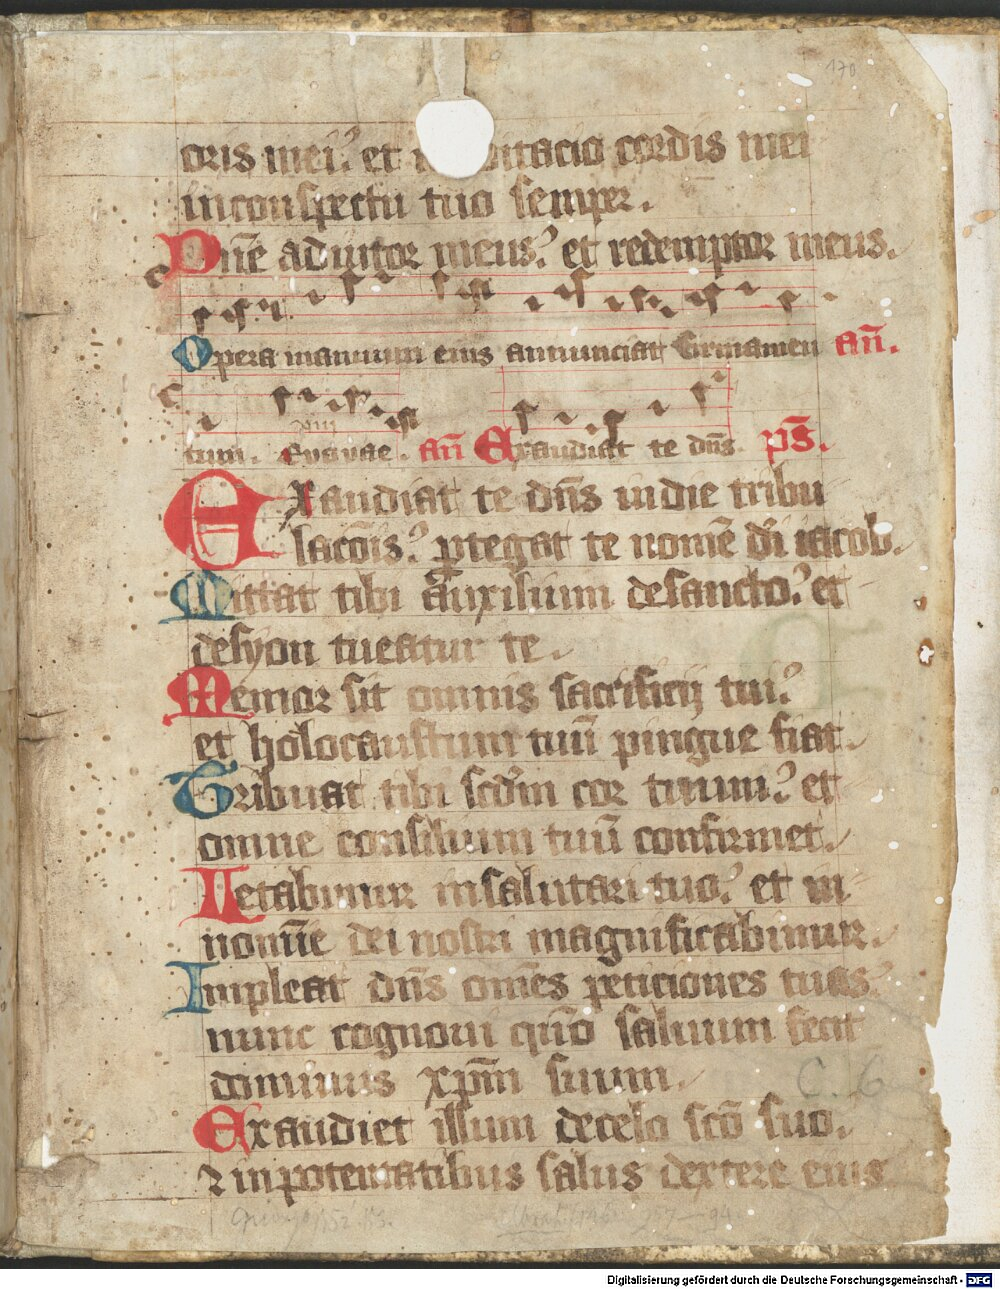 170
oris mei: et itacio cordis mei
in conspectu tuo semper.
Dne adiutor meus: et redemptor meus.
Opera manuum eius annunciat firmamen añ.
tum. Euouae. añ Exaudiat te dns. ps.
Exaudiat te dns in die tribu
lacõis: ptegat te nomẽ di iacob.
Mittat tibi auxilium de sancto: et
de syon tueatur te.
Memor sit omnis sacrificij tui:
et holocaustum tuũ pingue fiat.
Tribuat tibi scdm cor tuum: et
omne consilium tuũ confirmet.
Letabimur in salutari tuo: et in
nomie dei nostri magnificabimur.
Impleat dns omẽs peticiones tuas:
nunc cognoui qño saluum fecit
dominus xpm suum.
Exaudiet illum de celo scõ suo.
⁊ in potentatibus salus dextere eius
C. 6
Digitalisierung gefördert durch die Deutsche Forschungsgemeinschaft - DFG